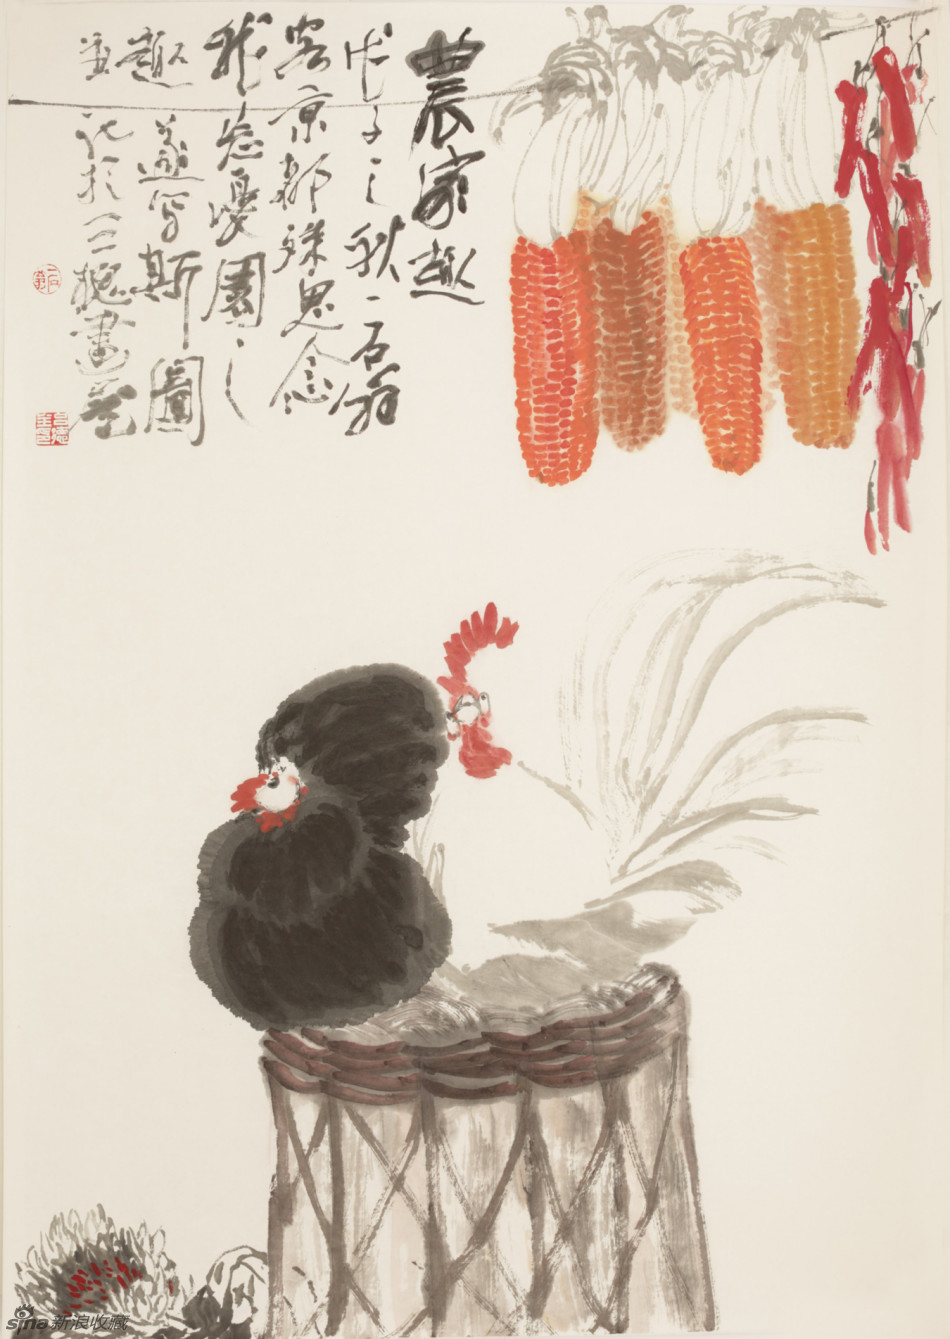 農家趣
戊子之秋一石翁
客京都殊思念
我忘憂園之
趣遂寫斯圖
並記於三槐
sina新浪收藏